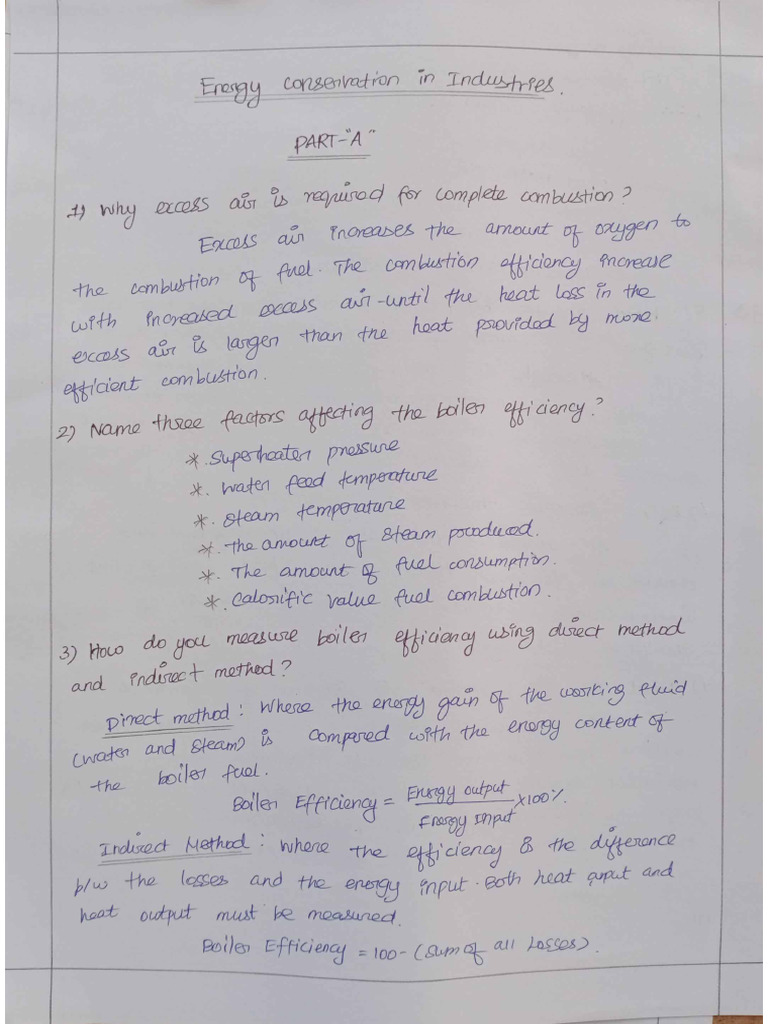 Energy conservation in Industries.
PART-"A"
1) Why excess air is required for complete combustion?
Excess air increases the amount of oxygen to
the combustion of fuel. The combustion efficiency increase
with increased excess air -until the heat loss in the
excess air is larger than the heat provided by more.
efficient combustion.
2) Name three factors affecting the boiler efficiency?
*. Superheater pressure
*. Water feed temperature
*. Steam temperature
*. The amount of steam produced.
*. The amount of fuel consumption.
*. Calorific value fuel combustion.
3) How do you measure boiler efficiency using direct method
and indirect method?
Direct method: Where the energy gain of the working fluid
(water and steam) is compared with the energy content of
the boiler fuel.
Boiler Efficiency = Energy output / Energy Input ×100%.
Indirect Method: Where the efficiency is the difference
b/w the losses and the energy input. Both heat input and
heat output must be measured.
Boiler Efficiency = 100 - (Sum of all Losses).